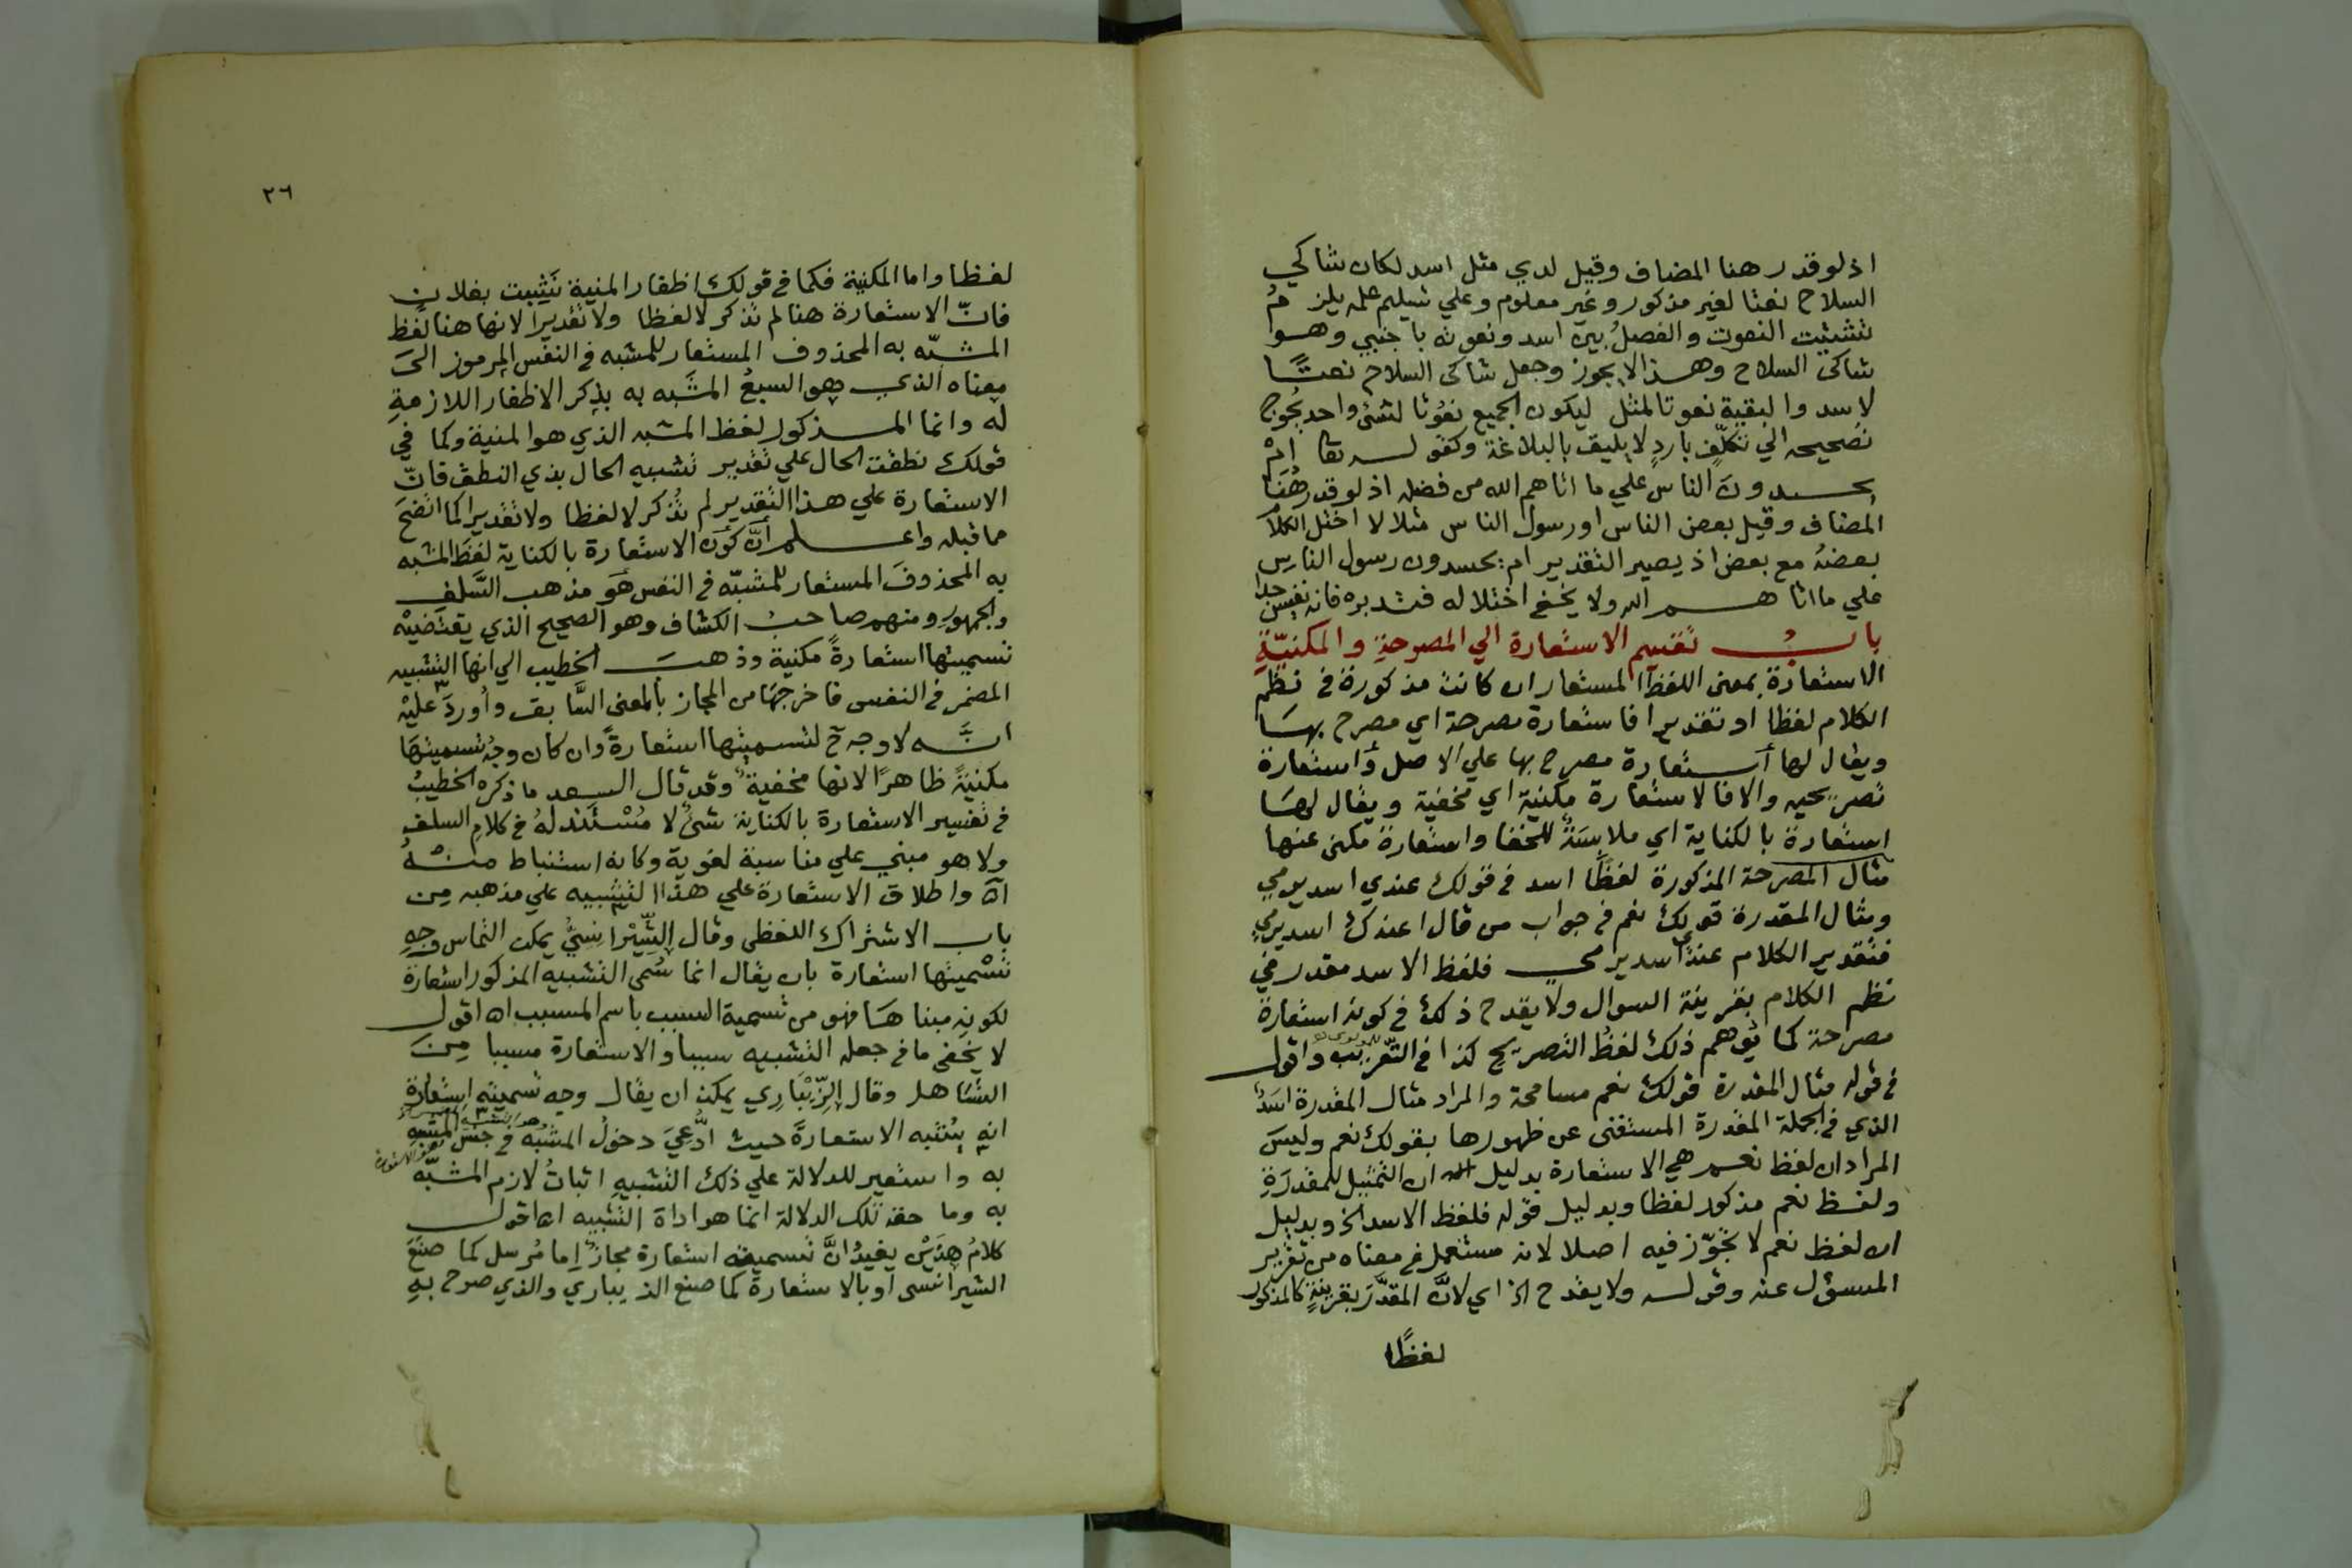 اذ لو قدر هنا المضاف وقيل لدي مثل اسد لكان شاكي
السلاح نعتا لغير مذكور وغير معلوم وعلي تسليم علمه يلزم
تشتيت النعوت والفصلُ بين اسد ونعوته باجنبي وهو
شاكى السلاح وهذا لا يجوز وجعل شاكى السلاح نعتًا
لاسد والبقية نعوتا لمثل ليكون الجميع نعُوتا لشئ واحد يُحوج
تصحيحه الي تكلّفٍ باردٍ لا يليق بالبلاغة وكقولـــه تعا امْ
يحسدونَ الناس علي ما اتاهم الله من فضله اذ لو قدر هُنَا
المضاف وقيل بعض الناس او رسول الناس مثلا لاختل الكلام
بعضهُ مع بعض اذ يصير التقدير ام يحسدون رسول الناس
علي ما اتاهـــم الله ولا يخفي اختلاله فتدبره فانه نفيس جدا
بابُ تقسيم الاستعارة الي المصرحةِ والمكنيّةِ
الاستعارة بمعنى اللفظ المستعار ان كانت مذكورة في نظم
الكلام لفظا او تقديرا فاستعارة مصرحة اي مصرح بهَا
ويقال لها استعارة مصرح بها علي الاصل واستعارة
تصريحيه والا فالاستعارة مكنية اي مخفية ويقال لهَا
استعارة بالكناية اي ملابسَةٌ للخفا واستعارة مكنى عنها
مثال المصرحة المذكورة لفظًا اسد في قولك عندي اسد يرمي
ومثال المقدرة قولك نعم في جواب من قال اعندك اسد يرمي
فتقدير الكلام عندي اسد يرمي فلفظ الاسد مقدر في
نظم الكلام بقرينة السوال ولا يقدح ذلك في كونه استعارة
مصرحة كما يُوهم ذلك لفظُ التصريح كذا في التعريب واقول
في قوله مثال المقدرة قولك نعم مسامحة والمراد مثال المقدرة اسَدُ
الذي في الجملة المقدرة المستغنى عن ظهورها بقولك نعم وليسَ
المراد ان لفظ نعـــم هي الاستعارة بدليل ان التمثيل للمقدرَةِ
ولفظ نعم مذكور لفظا وبدليل قوله فلفظ الاسد الخ وبدليل
ان لفظ نعم لا تجوّز فيه اصلا لانه مستعمل في معناه من تقرير
المسؤل عنه وقولـــه ولا يقدح الخ اي لانَّ المقدَّرَ بقرينةٍ كالمذكور
لفظًا
٢٦
لفظا واما المكنية فكما في قولك اظفار المنية نَشِبت بفلان
فانّ الاستعارة هنا لم تذكر لا لفظا ولا تقديرا لانها هنا لفظ
المشبّه به المحذوف المستعار للمشبه في النفس المرموز الىَ
معناه الذي هو السبعُ المشَبه به بذِكر الاظفار اللازمةِ
له وانما المـــذكور لفظ المشبه الذي هو المنية وكما في
قولك نطقت الحال علي تقدير تشبيه الحال بذي النطق فانّ
الاستعارة علي هذا التقدير لم تُذكر لا لفظا ولا تقديرا كما اتضَحَ
مما قبله واعـــلم أنَّ كَونَ الاستعارة بالكناية لفظَ المشبه
به المحذوفَ المستعار للمشبّه في النفس هوَ مذهب السَّلفِ
والجمهورِ ومنهم صاحبُ الكشاف وهو الصحيح الذي يقتضيه
تسميتها استعارةً مكنية وذهبَ الخطيب الي انها التشبيه
المضمر في النفس فاخرجهَا من المجاز بالمعنى السَّابق واُوردَ عليْه
انَّـــه لا وجه ح لتسميتها استعارةً وان كان وجهُ تسميتهَا
مكنيةً ظاهرًا لانها مخفية وقد قال السعد ما ذكره الخطيبُ
في تفسير الاستعارة بالكناية شئٌ لا مُسْتَندَ لهُ في كلامِ السلفِ
ولا هو مبني علي مناسبة لغوية وكانه استنباط منْهُ
اه واطلاق الاستعارة علي هذا التشبيه علي مذهبه مِن
باب الاشتراك اللفظى وقال الشِّيْرانِسيُّ يمكن التماس وجهِ
تسْميتها استعارة بان يقال انما سُمى التشبيه المذكور استعارة
لكونِه مبناهَا فهو من تسمية السبب باسم المسبب اه اقول
لا يخفى ما في جعله التشبيه سببا والاستعارة مسببا مِنَ
التسَاهل وقال الزّيْبَارِي يمكن ان يقال وجه تسميته استعارة
انه يُشبه الاستعارةَ حيث ادُّعيَ دخولُ المشبّه في جنس المشبه
به واستعير للدلالة علي ذلك التشبيهِ اثباتُ لازم المشبّه
به وما حقه تلك الدلالة انما هو اداة التشبيه اه اقول
كلامُ هذَيْن يفيدُ انَّ تسميته استعارة مجازٌ اِما مُرسل كما صنعَ
الشيرانسى او بالاستعارة كما صنع الذيباري والذي صرح بهِ